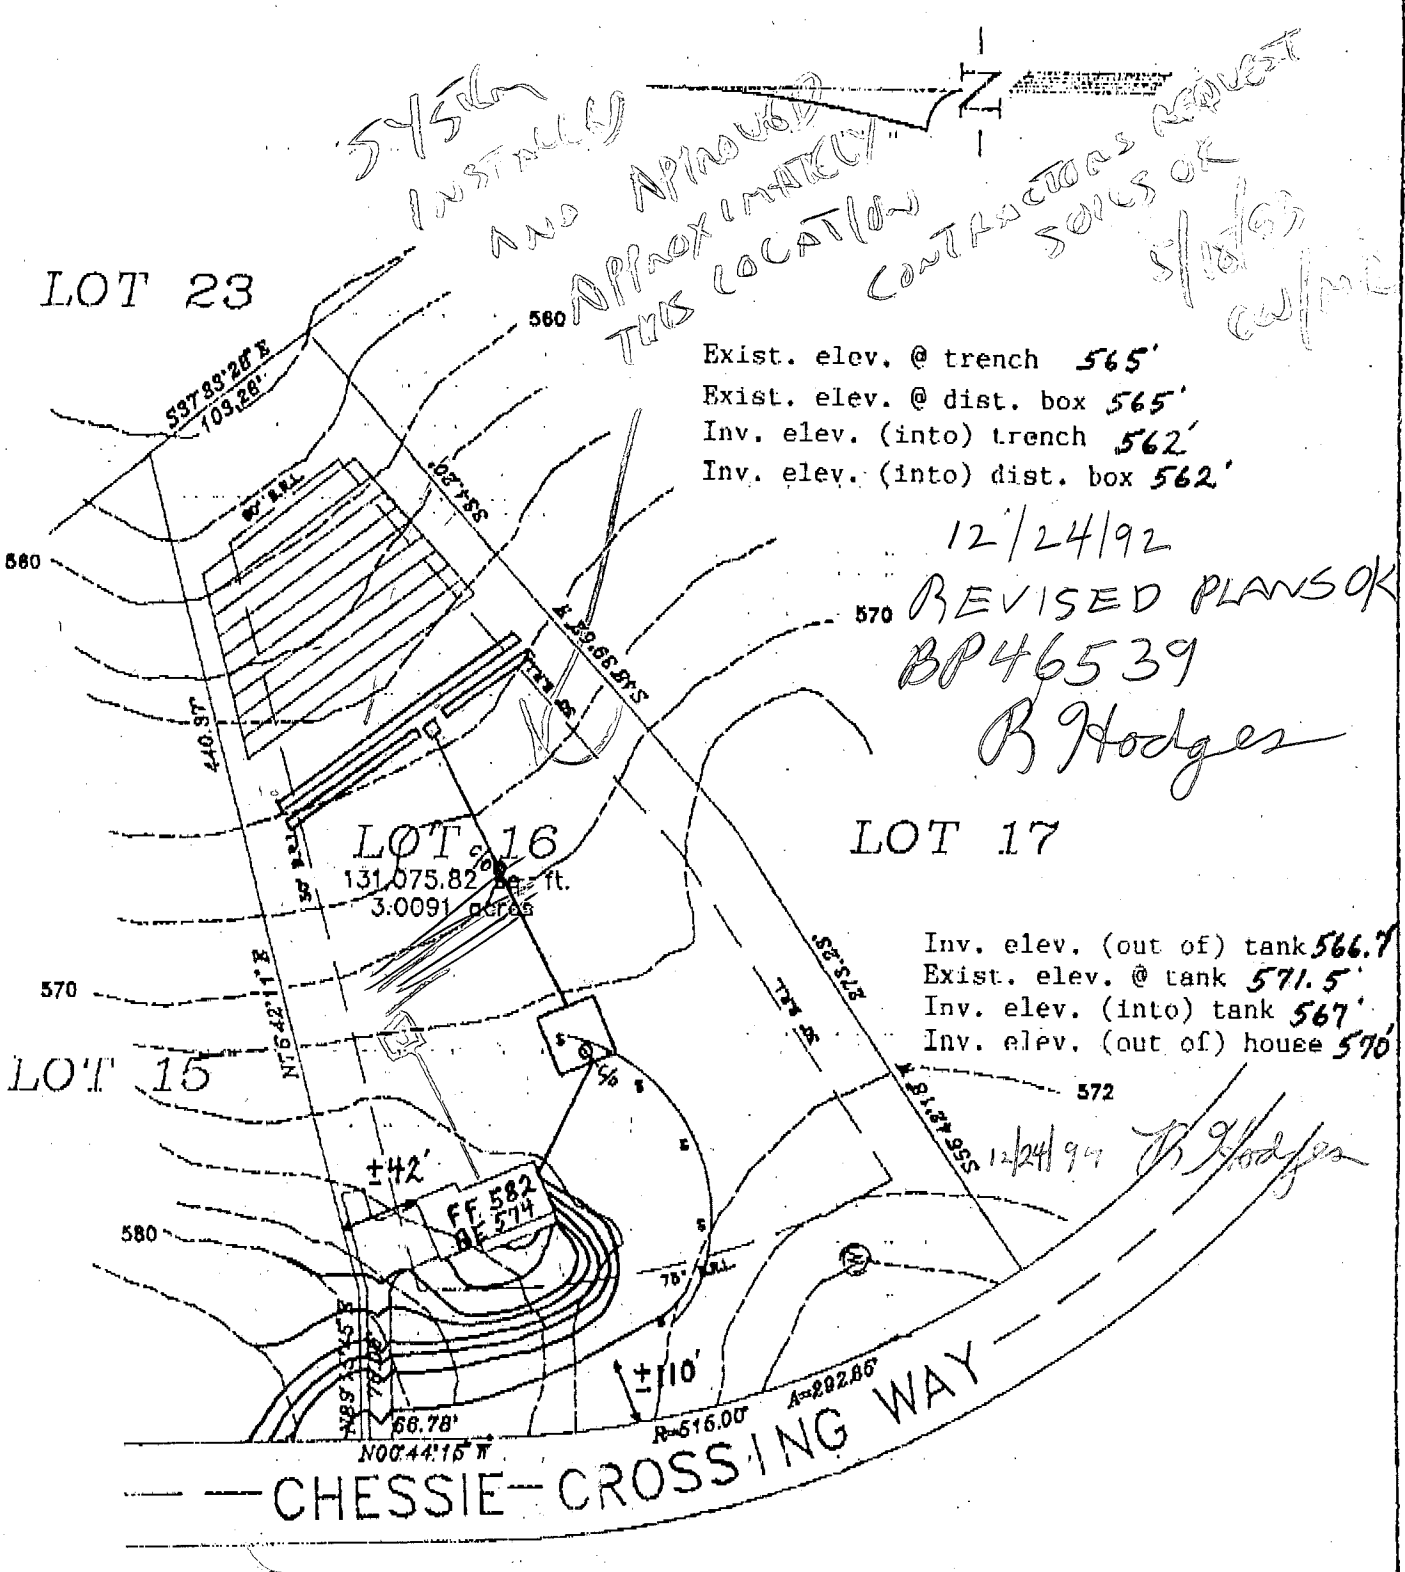 N
System
INSTALLED
AND APPROVED
APPROXIMATELY
THIS LOCATION
CONTRACTORS REQUEST
SOILS OK
5/18/93
LOT 23
560
S37°33'28" E
103.28'
Exist. elev. @ trench 565'
Exist. elev. @ dist. box 565'
Inv. elev. (into) trench 562'
Inv. elev. (into) dist. box 562'
334.20'
B.R.L.
12/24/92
REVISED PLANS OK
BP46539
R Hodges
560
570
S48°39'52" W
30' B.R.L.
440.97'
LOT 16
131,075.82 sq. ft.
3.0091 acres
C/O
LOT 17
30' B.R.L.
Inv. elev. (out of) tank 566.7
Exist. elev. @ tank 571.5'
Inv. elev. (into) tank 567'
Inv. elev. (out of) house 570'
273.23'
30' B.R.L.
570
N76°42'11" E
LOT 15
S
C/O
S
S
S
S
572
S55°42'18" W
R Hodges
±42'
FF. 582
BF 574
580
75' B.R.L.
W
±110'
66.78'
N00°44'15" W
R=515.00'
A=292.85'
CHESSIE CROSSING WAY